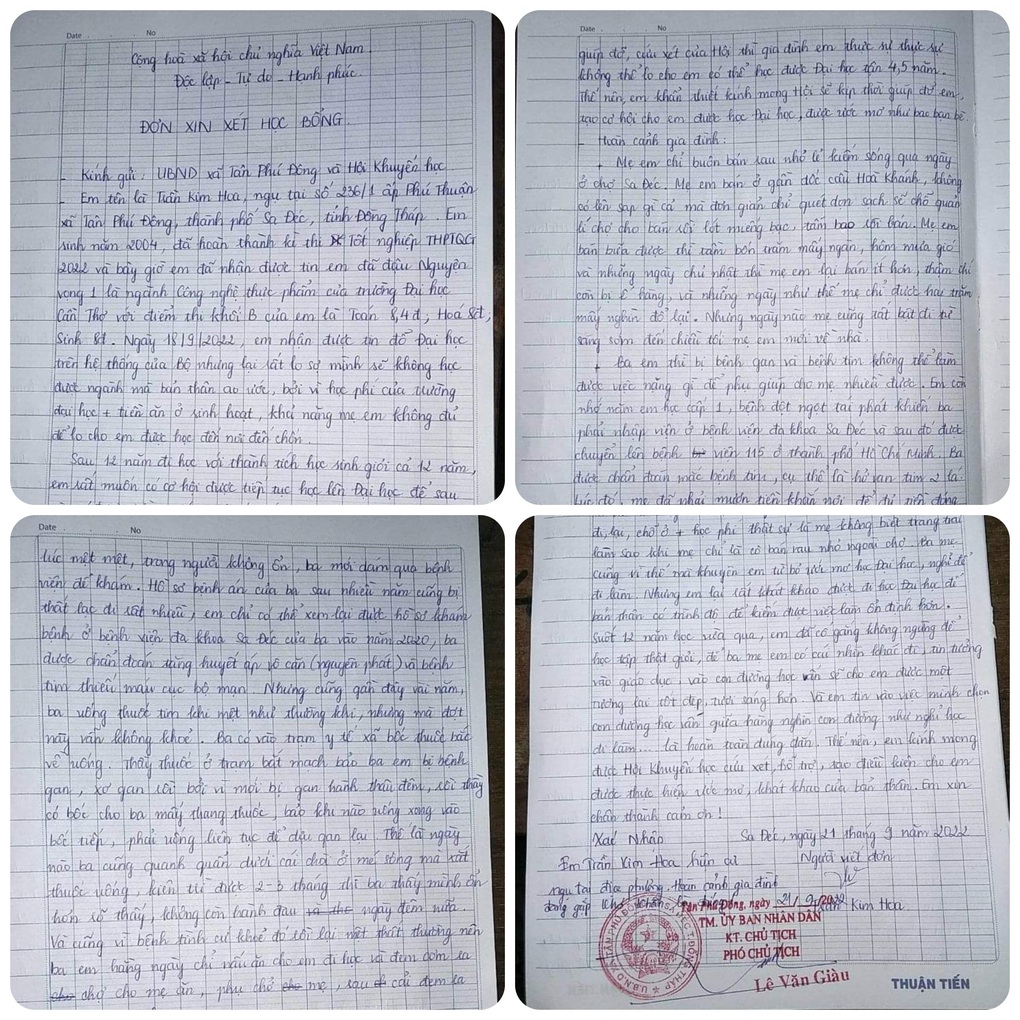 Date No
Cộng hoà xã hội chủ nghĩa Việt Nam
Độc lập - Tự do - Hạnh phúc
ĐƠN XIN XÉT HỌC BỔNG
- Kính gửi: UBND xã Tân Phú Đông và Hội Khuyến học
- Em tên là Trần Kim Hoa, ngụ tại số 236/1 ấp Phú Thuận
xã Tân Phú Đông, thành phố Sa Đéc, tỉnh Đồng Tháp. Em
sinh năm 2004, đã hoàn thành kì thi Tốt nghiệp THPTQG
2022 và bây giờ em đã nhận được tin em đã đậu Nguyện
vọng 1 là ngành Công nghệ thực phẩm của trường Đại học
Cần Thơ với điểm thi khối B của em là Toán 8,4đ, Hoá 8đ,
Sinh 8đ. Ngày 18/9/2022, em nhận được tin đỗ Đại học
trên hệ thống của Bộ nhưng lại rất lo sợ mình sẽ không học
được ngành mà bản thân ao ước, bởi vì học phí của trường
đại học + tiền ăn ở sinh hoạt, khả năng mẹ em không đủ
để lo cho em được học đến nơi đến chốn.
Sau 12 năm đi học với thành tích học sinh giỏi cả 12 năm,
em rất muốn có cơ hội được tiếp tục học lên Đại học để sau
Date No
giúp đỡ, cứu xét của Hội thì gia đình em thực sự thực sự
không thể lo cho em có thể học được Đại học tận 4,5 năm.
Thế nên, em khẩn thiết kính mong Hội sẽ kịp thời giúp đỡ em,
tạo cơ hội cho em được học Đại học, được ước mơ như bao bạn bè.
- Hoàn cảnh gia đình:
+ Mẹ em chỉ buôn bán rau nhỏ lẻ kiếm sống qua ngày
ở chợ Sa Đéc. Mẹ em bán ở gần dốc cầu Hoà Khánh, không
có lên sạp gì cả mà đơn giản chỉ quét dọn sạch sẽ chỗ quản
lí chợ cho bán rồi lót miếng bạc, tấm bao rồi bán. Mẹ em
bán bữa được thì tầm bốn trăm mấy ngàn, hôm mưa gió
và những ngày chủ nhật thì mẹ em lại bán ít hơn, thậm chí
còn bị ế hàng, và những ngày như thế mẹ chỉ được hai trăm
mấy nghìn đổ lại. Nhưng ngày nào mẹ cũng tất bật đi từ
sáng sớm đến chiều tối mẹ em mới về nhà.
+ Ba em thì bị bệnh gan và bệnh tim không thể làm
được việc nặng gì để phụ giúp cho mẹ nhiều được. Em còn
nhớ năm em học cấp 1, bệnh đột ngột tái phát khiến ba
phải nhập viện ở bệnh viện đa khoa Sa Đéc và sau đó được
chuyển lên bệnh viện 115 ở thành phố Hồ Chí Minh. Ba
được chẩn đoán mắc bệnh tim, cụ thể là hở van tim 2 lá
lúc đó, mẹ đã phải mượn tiền khắp nơi để
Date No
lúc mệt mệt, trong người không ổn, ba mới dám qua bệnh
viện để khám. Hồ sơ bệnh án của ba sau nhiều năm cũng bị
thất lạc đi rất nhiều, em chỉ có thể xem lại được hồ sơ khám
bệnh ở bệnh viện đa khoa Sa Đéc của ba vào năm 2020, ba
được chẩn đoán tăng huyết áp vô căn (nguyên phát) và bệnh
tim thiếu máu cục bộ mạn. Nhưng cũng gần đây vài năm,
ba uống thuốc tim khi mệt như thường khi, nhưng mà đợt
này vẫn không khoẻ. Ba có vào trạm y tế xã bốc thuốc bắc
về uống. Thầy thuốc ở trạm bắt mạch bảo ba em bị bệnh
gan, xơ gan rồi bởi vì mới bị gan hành thâu đêm, rồi thầy
có bốc cho ba mấy thang thuốc, bảo khi nào uống xong vào
bốc tiếp, phải uống liên tục để dịu gan lại. Thế là ngày
nào ba cũng quanh quẩn dưới cái chòi ở mé sông mà sắt
thuốc uống, kiên trì được 2-3 tháng thì ba thấy mình ổn
hơn rõ thấy, không còn hành đau ngày đêm nữa.
Và cũng vì bệnh tình cứ khoẻ đó rồi lại mệt thất thường nên
ba em hằng ngày chỉ nấu ăn cho em đi học và đem cơm ra
chợ cho mẹ ăn, phụ chở mẹ, rau cải đem ra
đi lại, chỗ ở + học phí thật sự là mẹ không biết trang trải
làm sao khi mẹ chỉ là cô bán rau nhỏ ngoài chợ. Ba mẹ
cũng vì thế mà khuyên em từ bỏ ước mơ học Đại học, nghỉ để
đi làm. Nhưng em lại rất khát khao được đi học Đại học để
bản thân có trình độ để kiếm được việc làm ổn định hơn.
Suốt 12 năm học vừa qua, em đã cố gắng không ngừng để
học tập thật giỏi, để ba mẹ em có cái nhìn khác đi, tin tưởng
vào giáo dục, vào con đường học vấn sẽ cho em được một
tương lai tốt đẹp, tươi sáng hơn. Và em tin vào việc mình chọn
con đường học vấn giữa hàng nghìn con đường như nghỉ học
đi làm... là hoàn toàn đúng đắn. Thế nên, em kính mong
được Hội Khuyến học cứu xét, hỗ trợ, tạo điều kiện cho em
được thực hiện ước mơ, khát khao của bản thân. Em xin
chân thành cảm ơn!
Xác Nhận Sa Đéc, ngày 21 tháng 9 năm 2022
Em Trần Kim Hoa hiện cư Người viết đơn
ngụ tại địa phương. Hoàn cảnh gia đình
đang gặp khó khăn Tân Phú Đông, ngày 21/9/2022 Kim Hoa
TM. ỦY BAN NHÂN DÂN
KT. CHỦ TỊCH
PHÓ CHỦ TỊCH
Lê Văn Giàu
THUẬN TIẾN